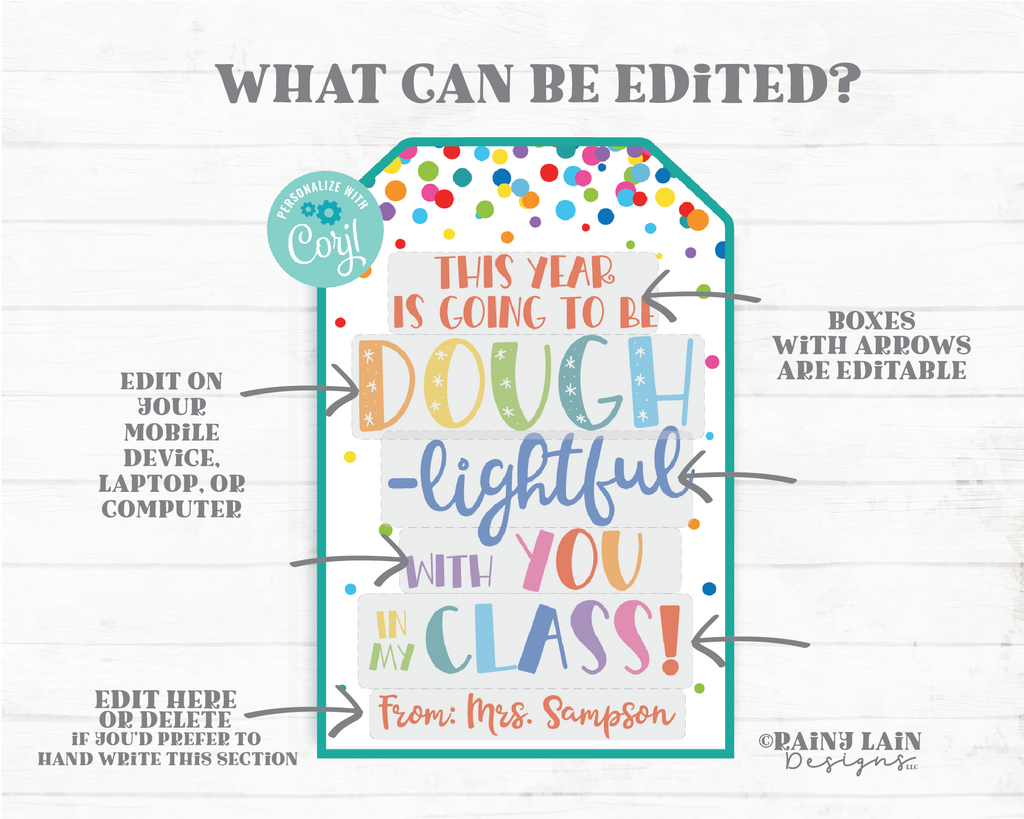 WHAT CAN BE EDITED?
PERSONALIZE WITH
Corjl
THIS YEAR
IS GOING TO BE
DOUGH
-lightful
WITH YOU
IN MY CLASS!
From: Mrs. Sampson
BOXES
WITH ARROWS
ARE EDITABLE
EDIT ON
YOUR
MOBILE
DEVICE,
LAPTOP, OR
COMPUTER
EDIT HERE
OR DELETE
IF YOU'D PREFER TO
HAND WRITE THIS SECTION
©RAINY LAIN
Designs LLC